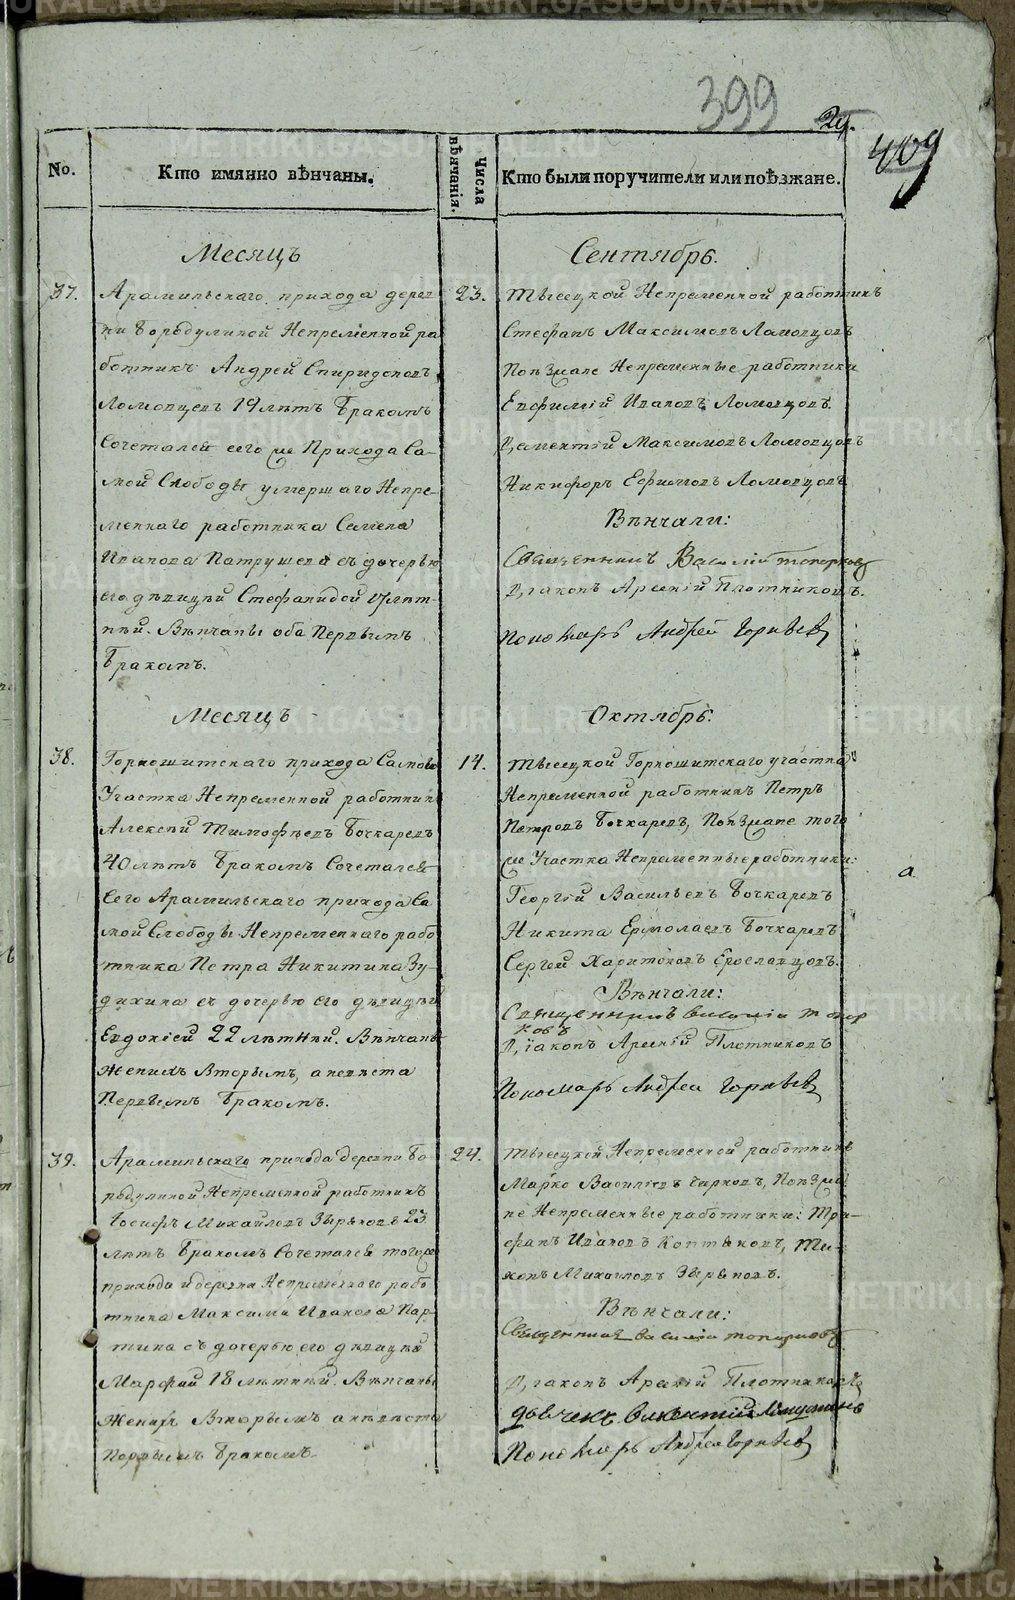 399
409
No.
Кто имянно вѣнчаны.
Числа вѣнчанія.
Кто были поручители или поѣзжане.
Месяцъ
Сентябрь.
37.
Арамильскаго прихода дерев
ни Бородулиной Непременной ра
ботникъ Андрей Спиридоновъ
Ломовцевъ 19 лѣтъ Бракомъ
Сочетался сего же Прихода Са-
мой Слободы умершаго Непре-
меннаго работника Семена
Иванова Патрушева съ дочерью
его дѣвицѣй Стефанидой 17 лѣт-
нѣй. Вѣнчаны оба Первымъ
Бракомъ.
23.
Тысецкой Непременной работникъ
Стефанъ Максимовъ Ломовцовъ
Поѣзжане Непременные работники
Евфимій Ивановъ Ломовцовъ.
Дементій Максимовъ Ломовцовъ
Никифоръ Ефимовъ Ломовцовъ
Вѣнчали:
Священникъ Василій Топорковъ
Діаконъ Арсеній Плотниковъ.
Пономарь Андрей
Месяцъ
Октябрь.
38.
Горнощитскаго прихода Самово
Участка Непременной работникъ
Алексѣй Тимофѣевъ Бочкаревъ
40 лѣтъ Бракомъ Сочетался
Сего Арамильскаго прихода Са
мой Слободы Непременнаго рабо
тника Петра Никитина Зу-
дихина съ дочерью его дѣвицѣй
Евдокіей 22 лѣтнѣй. Вѣнчаны
Женихъ Вторымъ, а невѣста
Первымъ Бракомъ.
14.
Тысецкой Горнощитскаго участка
Непременной работникъ Петръ
Петровъ Бочкаревъ, Поѣзжане того
же Участка Непременные работники:
Георгій Васильевъ Бочкаревъ
Никита Ермолаевъ Бочкаревъ
Сергей Харитоновъ Ерославцовъ.
Вѣнчали:
Священникъ Василій Топор
ковъ
Діаконъ Арсеній Плотниковъ
Пономарь Андрей
39.
Арамильскаго прихода деревни Бо
родулиной Непременной работникъ
Іосифъ Михайловъ Зыряновъ 23
лѣтъ Бракомъ Сочетался тогоже
прихода и деревни Непременнаго рабо
тника Максима Иванова Пар
тина съ дочерью его дѣвицѣй
Марфой 18 лѣтнѣй. Вѣнчаны
Женихъ Вторымъ а невѣста
Первымъ Бракомъ.
24.
Тысецкой Непременной работникъ
Марко Василіевъ Чирковъ, Поѣзжа
не Непременные работники: Три-
фанъ Ивановъ Коптяковъ, Ти-
хонъ Михаиловъ Зыряновъ.
Вѣнчали:
Священникъ Василій Топорковъ
Діаконъ Арсеній Плотниковъ
Пономарь Андрей
METRIKI.GASO-URAL.RU